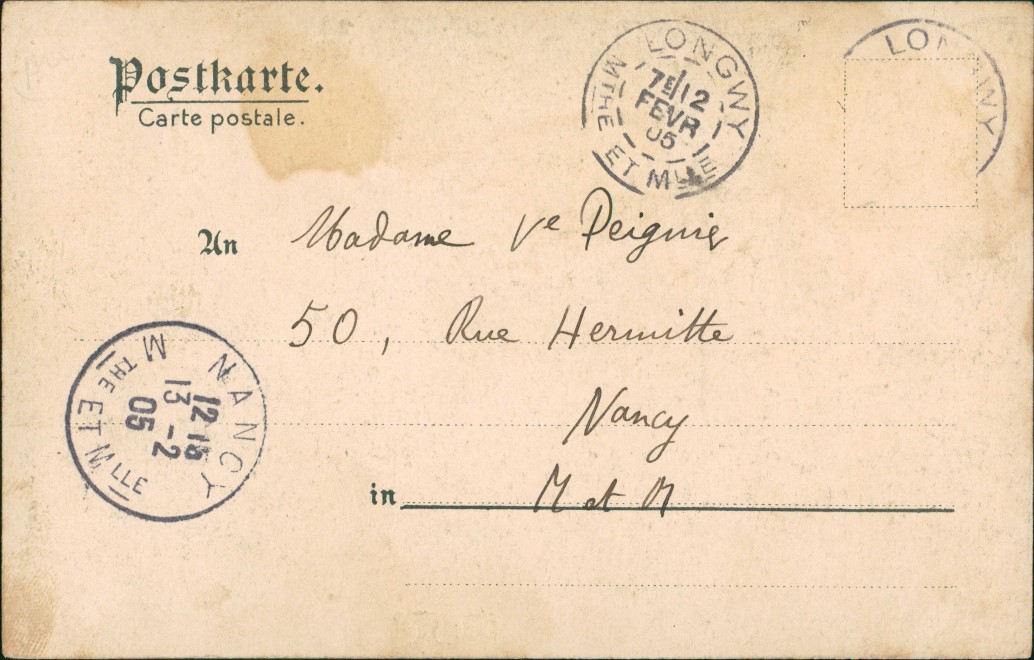 Postkarte.
Carte postale.
LONGWY
7E/12
FEVR
05
MTHE ET MLLE
LON WY
An Madame Ve Peignier
50, Rue Hermitte
Nancy
in M et M
NANCY
12 15
13 -2
05
MTHE ET MLLE